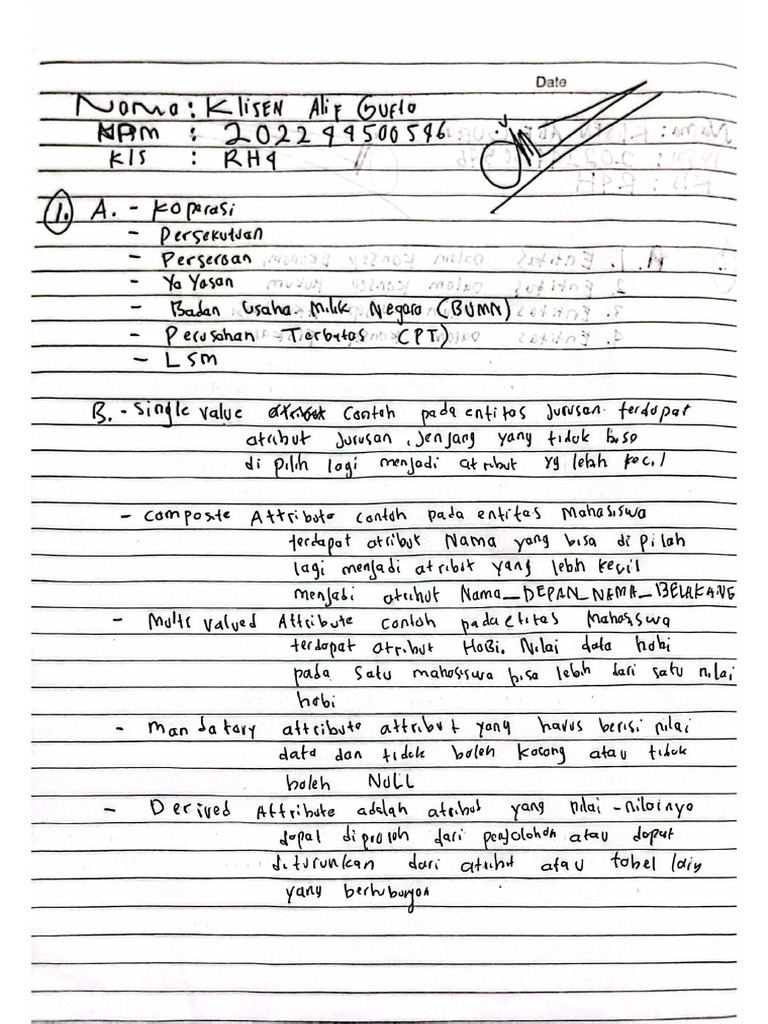 Date
Nama : KliSEN Alif Gufla
NPM : 202244500546
Kls : RH4
1. A. - Koperasi
- Persekutuan
- Perseroan
- Yayasan
- Badan Usaha Milik Negara (BUMN)
- Perusahan Terbatas (PT)
- LSM
B. - Single value contoh pada entitas Jurusan terdapat
atribut Jurusan, Jenjang yang tiduk biso
di pilih lagi menjadi atribut yg lebih kecil
- Composite Attribute contoh pada entitas Mahasiswa
terdapat atribut Nama yang bisa di pilah
lagi menjadi atribut yang lebih kecil
menjadi atribut Nama_DEPAN_NAMA_BELAKANG
- Multi valued Attribute contoh pada etitas Mahasiswa
terdapat atribut HoBi. Nilai data hobi
pada satu mahasiswa bisa lebih dari satu nilai
hobi
- Mandatary attribute attribut yang harus berisi nilai
data dan tidak boleh kosong atau tidak
boleh NULL
- Derived Attribute adalah atribut yang nilai-nilainya
dapat diproloh dari penjolohan atau dapat
diturunkan dari atribut atau tabel lain
yang berhubungan